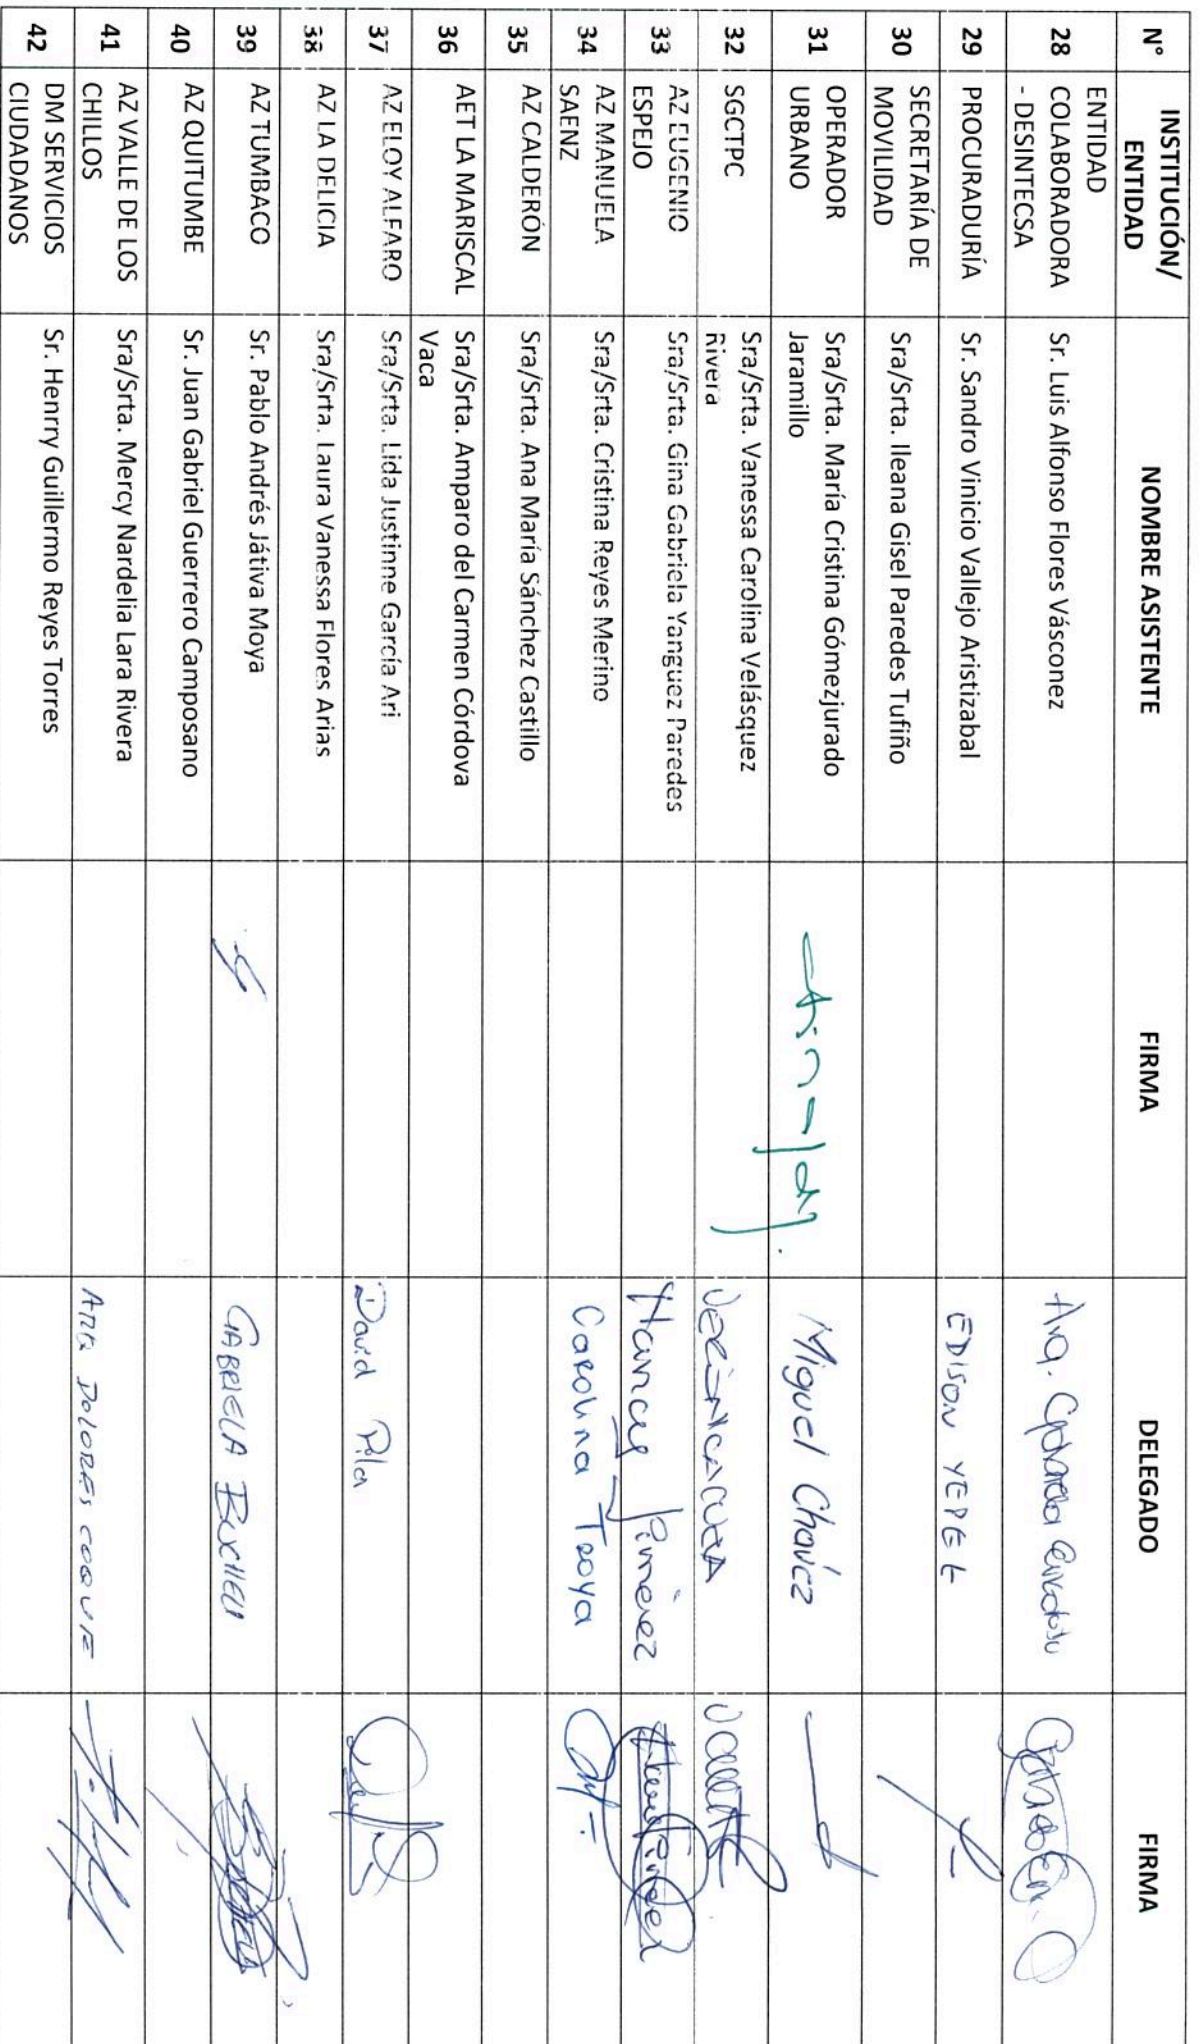 N° INSTITUCIÓN/ ENTIDAD NOMBRE ASISTENTE FIRMA DELEGADO FIRMA
28 ENTIDAD COLABORADORA - DESINTECSA Sr. Luis Alfonso Flores Vásconez
29 PROCURADURÍA Sr. Sandro Vinicio Vallejo Aristizabal EDISON YEPEZ
30 SECRETARÍA DE MOVILIDAD Sra/Srta. Ileana Gisel Paredes Tufiño
31 OPERADOR URBANO Sra/Srta. María Cristina Gómezjurado Jaramillo Miguel Chávez
32 SGCTPC Sra/Srta. Vanessa Carolina Velásquez Rivera
33 AZ EUGENIO ESPEJO Sra/Srta. Gina Gabriela Yanguez Paredes Jiménez
34 AZ MANUELA SAENZ Sra/Srta. Cristina Reyes Merino Carolina Troya
35 AZ CALDERÓN Sra/Srta. Ana María Sánchez Castillo
36 AET LA MARISCAL Sra/Srta. Amparo del Carmen Córdova Vaca
37 AZ ELOY ALFARO Sra/Srta. Lida Justinne García Ari David Pila
38 AZ LA DELICIA Sra/Srta. Laura Vanessa Flores Arias
39 AZ TUMBACO Sr. Pablo Andrés Játiva Moya GABRIELA BUCHELI
40 AZ QUITUMBE Sr. Juan Gabriel Guerrero Camposano
41 AZ VALLE DE LOS CHILLOS Sra/Srta. Mercy Nardelia Lara Rivera ANA DOLORES COQUE
42 DM SERVICIOS CIUDADANOS Sr. Henrry Guillermo Reyes Torres